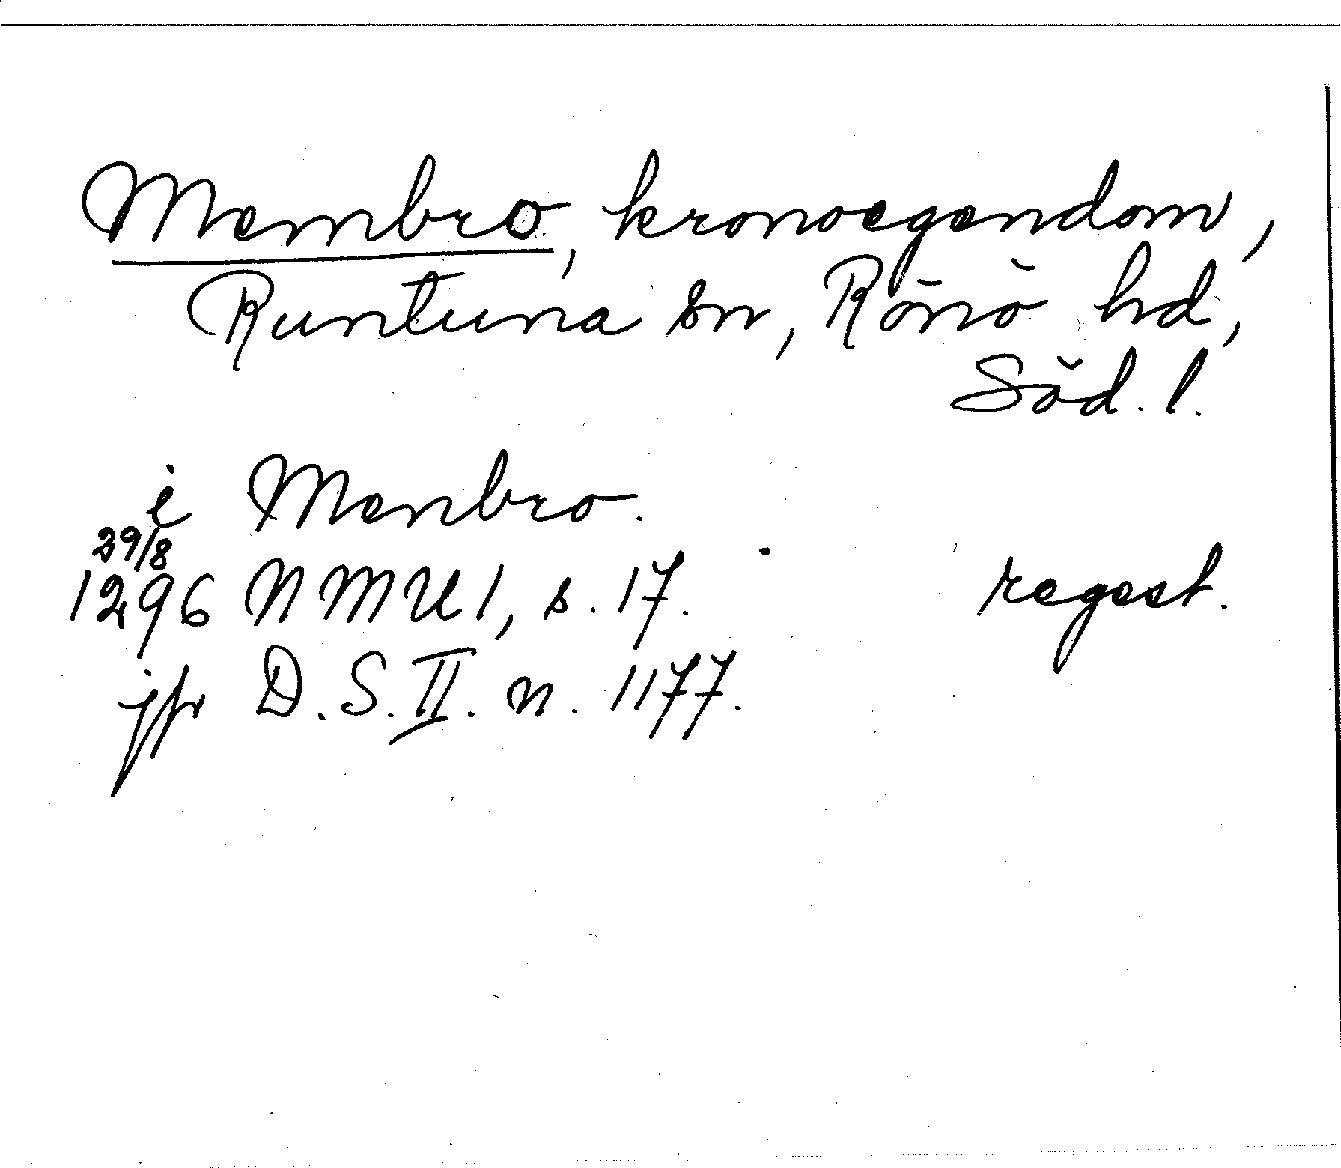 Membro, kronoegendom,
Runtuna sn, Rönö hd,
Söd. l.
i Menbro.
29/8
1296 NMU 1, s. 17. regest.
jfr D.S. II. n. 1177.